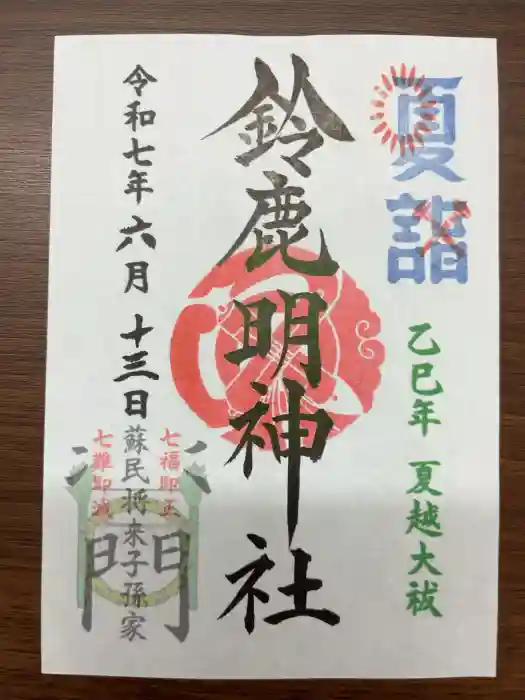 夏詣
乙巳年 夏越大祓
鈴鹿明神社
令和七年六月十三日
七福即正
七難即滅
蘇民将来子孫家
門